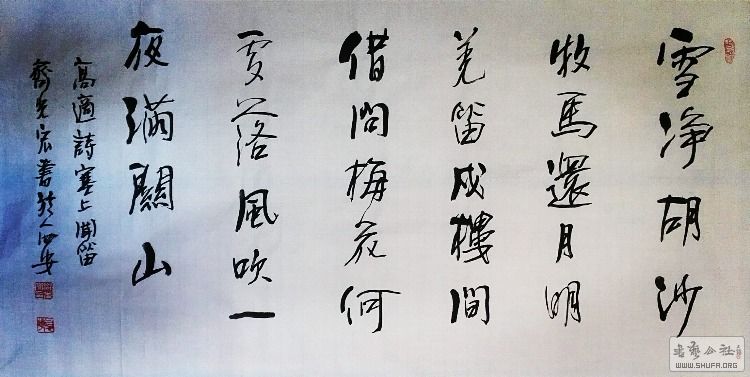 雪净胡沙
牧馬還月明
羌笛戍樓間
借問梅花何
處落風吹一
夜滿關山
高適詩塞上聞笛
書於西安
书艺公社
WWW.SHUFA.ORG